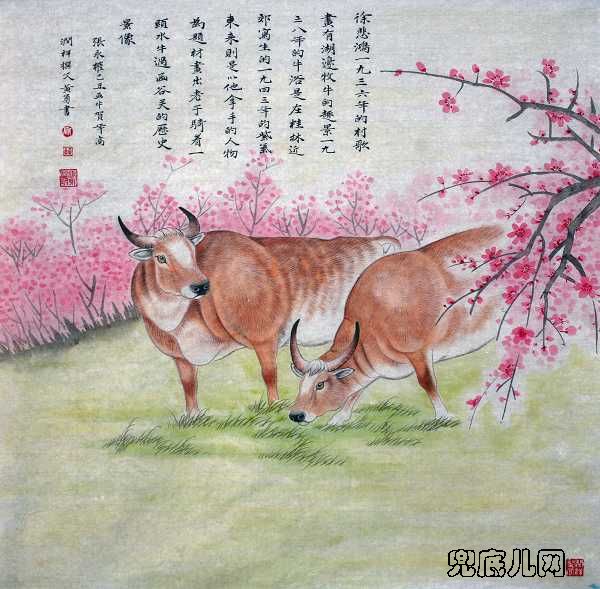 徐悲鴻一九三六年的村歌
畫有湖邊牧牛的趣景一九
三八年的牛浴是在桂林近
郊寫生的一九四三年的紫氣
東来則是以他拿手的人物
為題材畫出老子騎着一
頭水牛過函谷关的歷史
景像
張永權己丑五牛賀年高
潤祥撰文黃書
兜底儿网